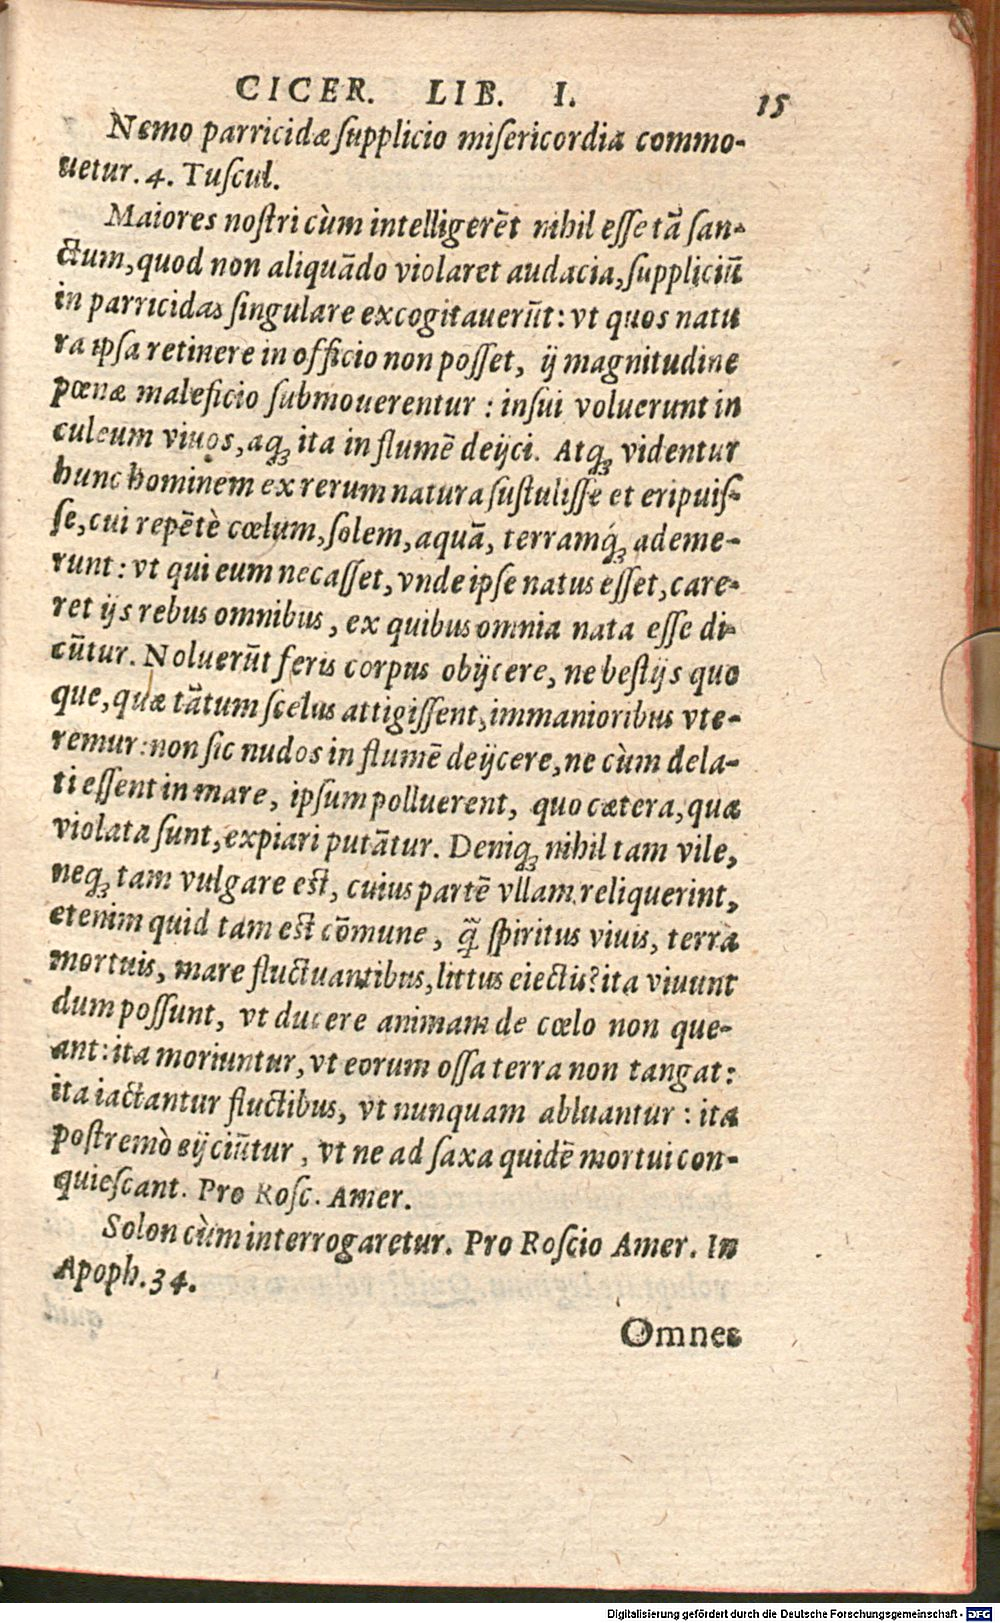 CICER. LIB. I. 15
Nemo parricidæ ſupplicio miſericordia commo-
uetur. 4. Tuſcul.
Maiores noſtri cùm intelligerēt nihil eſſe tā ſan-
ctum, quod non aliquādo violaret audacia, ſuppliciū
in parricidas ſingulare excogitauerūt: vt quos natu
ra ipſa retinere in officio non poſſet, ij magnitudine
pœnæ maleficio ſubmouerentur: inſui voluerunt in
culeum viuos, aqꝫ ita in flumē deijci. Atqꝫ videntur
hunc hominem ex rerum natura ſuſtuliſſe et eripuiſ-
ſe, cui repētè cœlum, ſolem, aquā, terramq́ꝫ ademe-
runt: vt qui eum necaſſet, vnde ipſe natus eſſet, care-
ret ijs rebus omnibus, ex quibus omnia nata eſſe di-
cūtur. Noluerūt feris corpus obijcere, ne beſtijs quo
que, quæ tātum ſcelus attigiſſent, immanioribus vte-
remur: non ſic nudos in flumē deijcere, ne cùm dela-
ti eſſent in mare, ipſum polluerent, quo cætera, quæ
violata ſunt, expiari putātur. Deniqꝫ nihil tam vile,
neqꝫ tam vulgare eſt, cuius partē vllam reliquerint,
etenim quid tam eſt cōmune, q̄̃ ſpiritus viuis, terra
mortuis, mare fluctuantibus, littus eiectis? ita viuunt
dum poſſunt, vt ducere animam de cœlo non que-
ant: ita moriuntur, vt eorum oſſa terra non tangat:
ita iactantur fluctibus, vt nunquam abluantur: ita
poſtremò eijciūtur, vt ne ad ſaxa quidē mortui con-
quieſcant. Pro Roſc. Amer.
Solon cùm interrogaretur. Pro Roſcio Amer. In
Apoph. 34.
Omnes
Digitalisierung gefördert durch die Deutsche Forschungsgemeinschaft - DFG